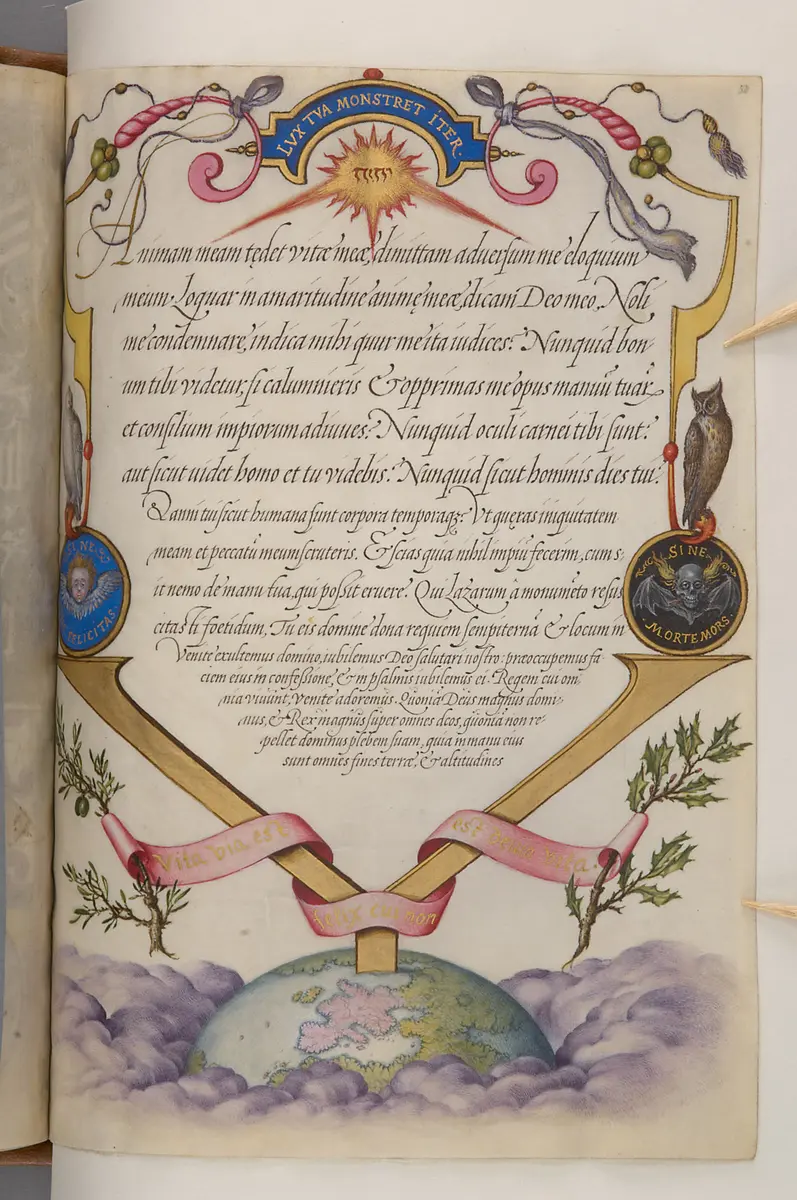 38
LVX TVA MONSTRET ITER.
יהוה
Animam meam tędet vitæ meæ, dimittam adversum me eloquium
meum. Loquar in amaritudine animę meæ, dicam Deo meo. Noli
me condemnare, indica mihi quur me ita iudices? Nunquid bon-
um tibi videtur, si calumnieris & opprimas me opus manuū tuarꝝ
et consilium impiorum adiuues? Nunquid oculi carnei tibi sunt?
aut sicut uidet homo et tu videbis? Nunquid sicut hominis dies tui?
& anni tui sicut humana sunt corpora temporaqꝫ? Vt quęras iniquitatem
meam et peccatū meum scruteris. & scias quia nihil impiū fecerim, cum s-
it nemo de manu tua, qui possit eruere? Qui Lazarum à monumēto resus
citasti foetidum, Tu eis domine dona requiem sempiternā & locum in
Venite exultemus domino, iubilemus Deo salutari nostro: præoccupemus fa-
ciem eius in confessione, & in psalmis iubilemus ei. Regem cui om
nia viuunt, venite adoremus. Quoniā Deus magnus domi-
nus, & Rex magnus super omnes deos, quoniā non re-
pellet dominus plebem suam, quia in manu eius
sunt omnes fines terræ, & altitudines
SI NE
FELICITAS.
SI NE
MORTE MORS.
Vita via est
felix cui non
est via.